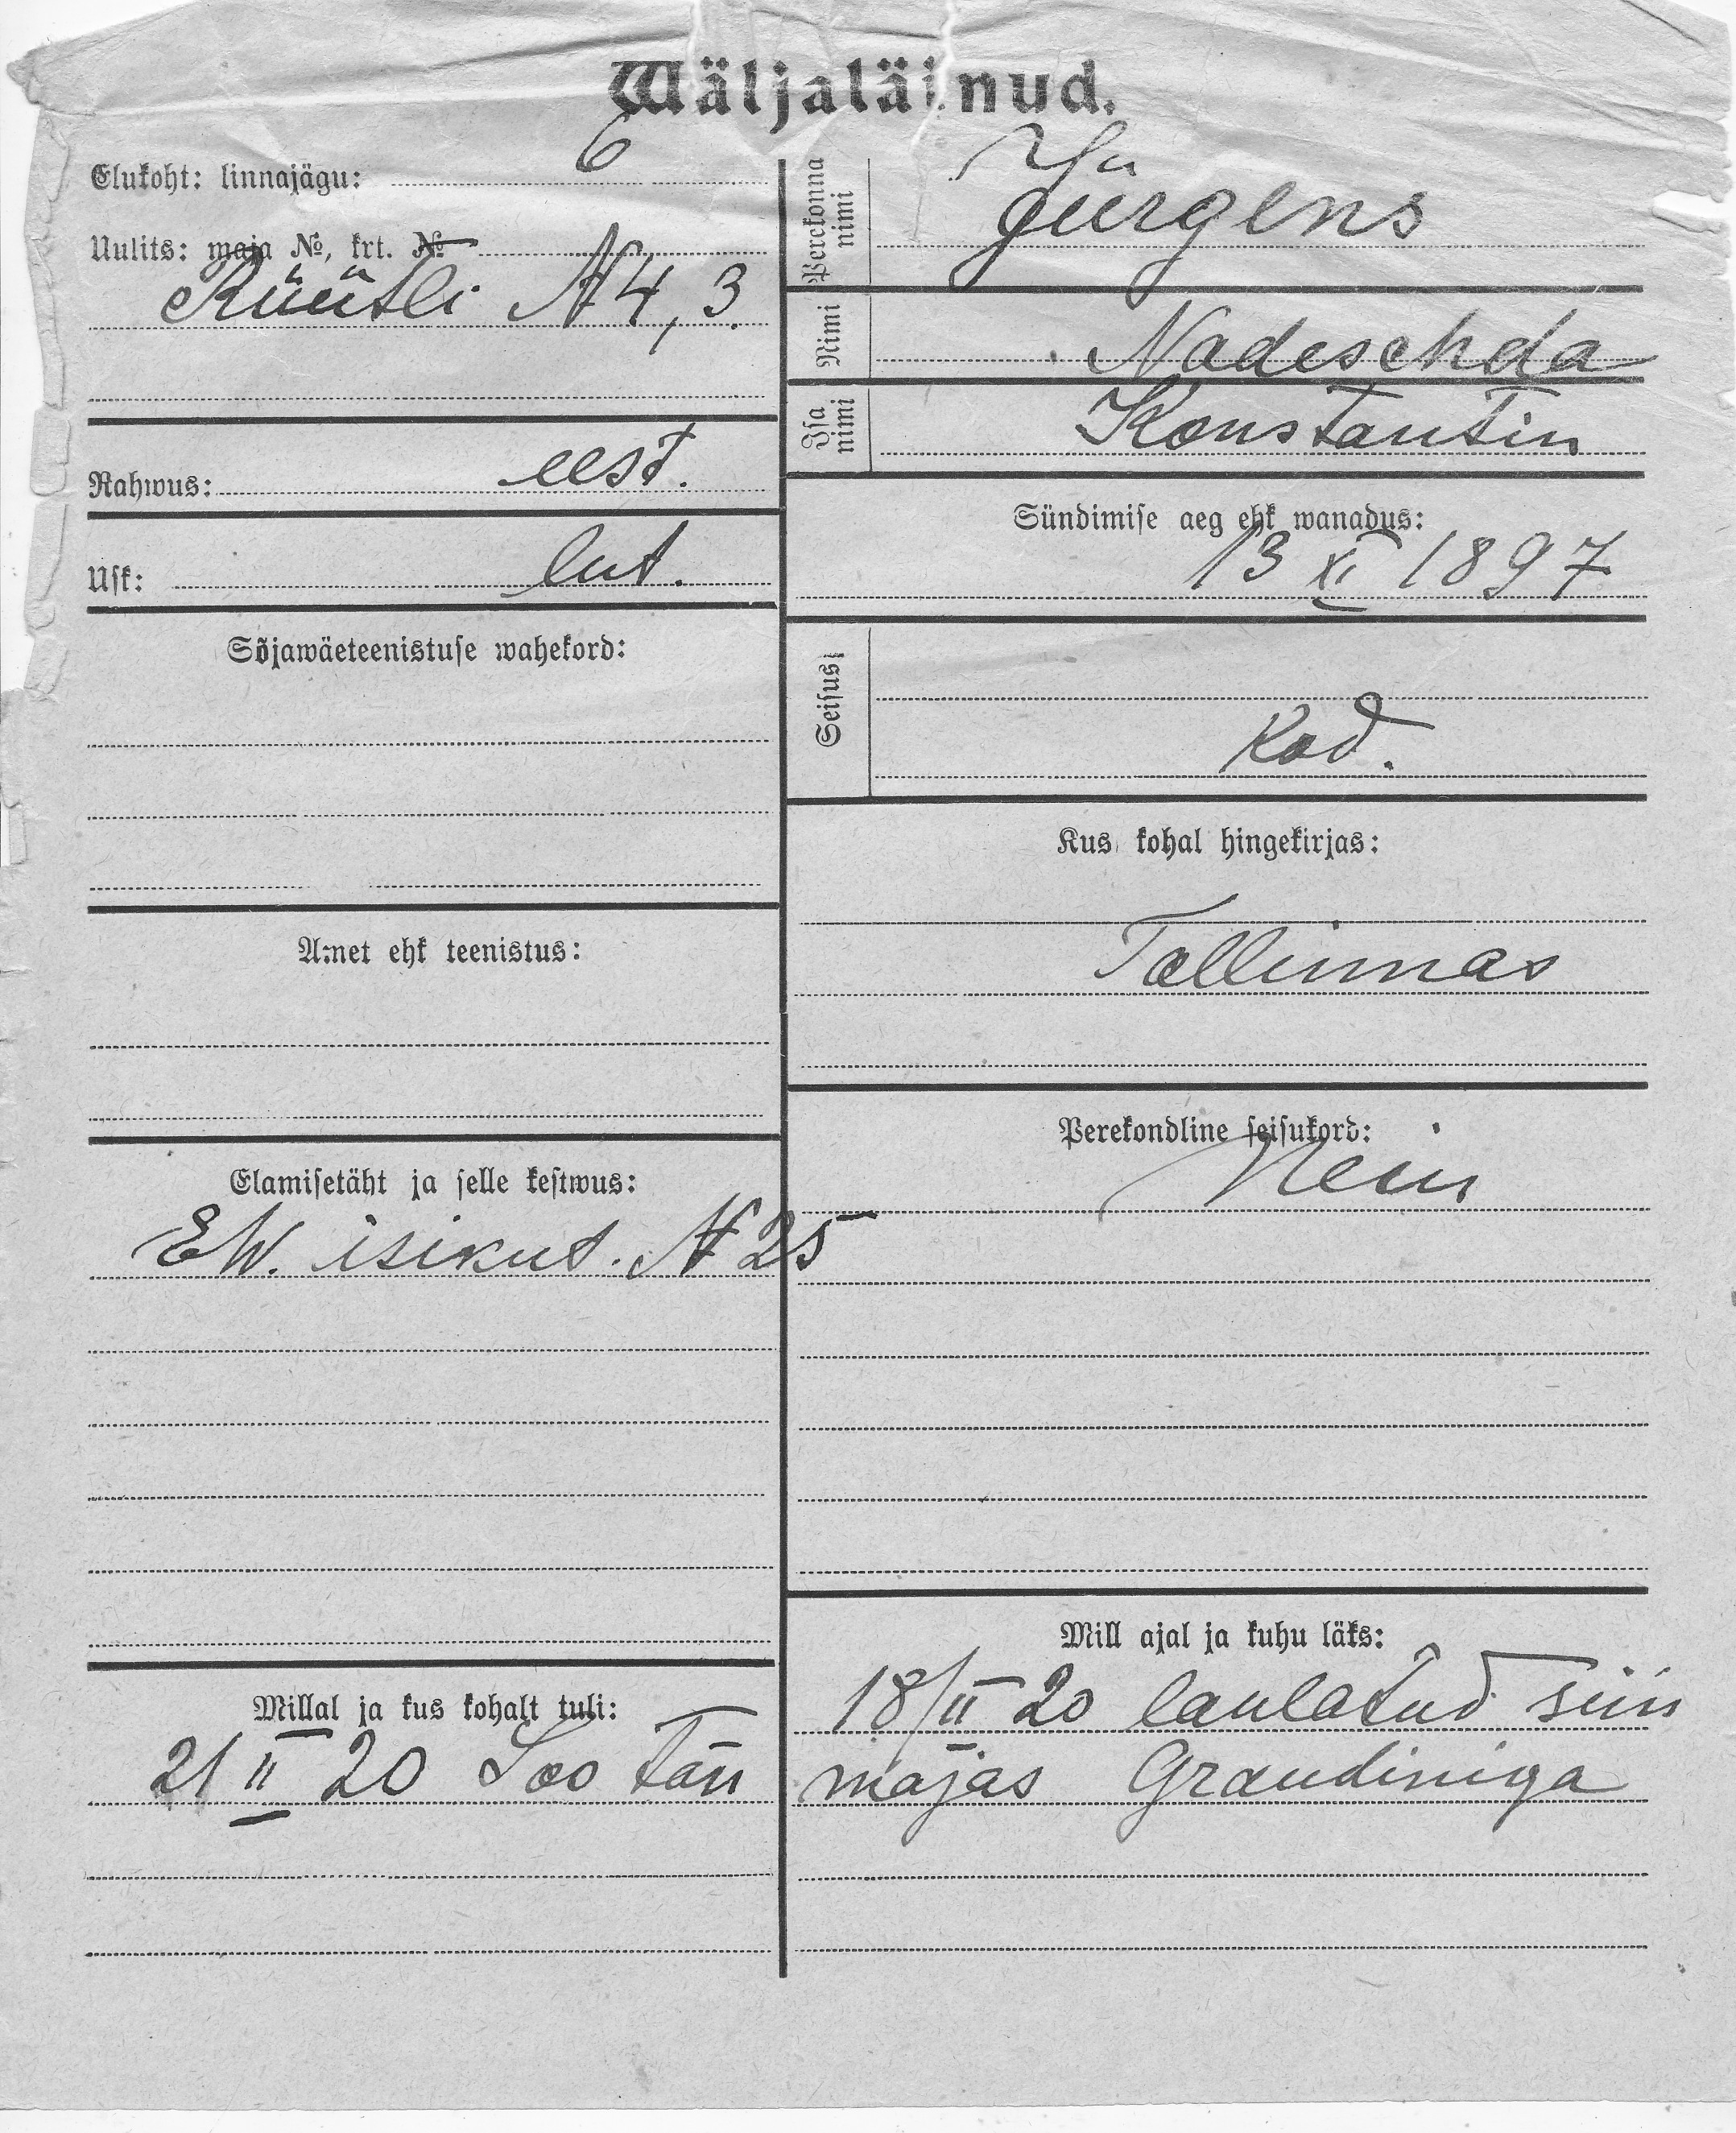 Wäljaläinud.
Elukoht: linnajägu: 6
Uulits: maja №, krt. №
Rüütli № 4, 3.
Rahwus: eest.
Usk: lut.
Sõjawäeteenistuse wahekord:
Amet ehk teenistus:
Elamisetäht ja selle kestwus:
EW. isikut. № 25
Millal ja kus kohalt tuli:
21 II 20 Soo tän
Perekonna nimi
Jürgens
Nimi
Nadeschda
Isa nimi
Konstantin
Sündimise aeg ehk wanadus:
13 XI 1897
Seisus
Kod.
Kus kohal hingekirjas:
Tallinnas
Perekondline seisukord:
Neiu
Mill ajal ja kuhu läks:
18/II 20 laulatud siin
majas Graudiniga